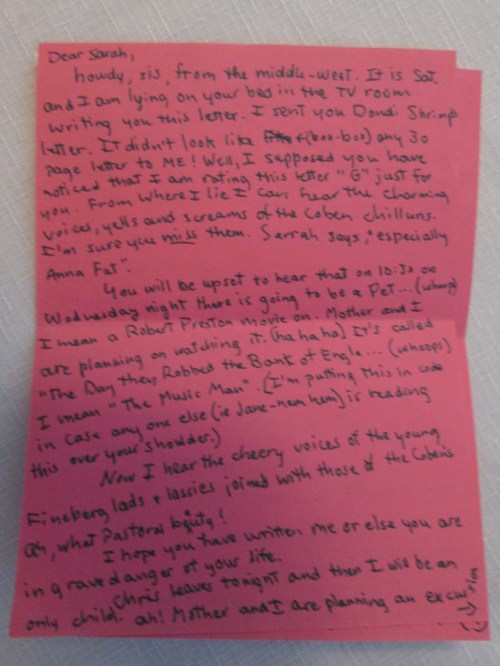 Dear Sarah,
howdy, sis, from the middle-west. It is Sat.
and I am lying on your bed in the TV room
writing you this letter. I sent you Dondi Shrimp
letter. It didn't look like (boo-boo) any 30
page letter to ME! Well, I supposed you have
noticed that I am rating this letter "G" just for
you. From where I lie I can hear the charming
voices, yells and screams of the Cohen chilluns.
I'm sure you miss them. Sarrah says, "especially
Anna Fat".
You will be upset to hear that on 10:30 on
Wednesday night there is going to be a Pet... (whoops)
I mean a Robert Preston movie on. Mother and I
are planning on watching it. (ha ha ha) It's called
"The Day they Robbed the Bank of Engla... (whoops)
I mean "The Music Man". (I'm putting this in code
in case any one else (ie Jane-hem hem) is reading
this over your shoulder.)
Now I hear the cheery voices of the young
Fineberg lads + lassies joined with those of the Cohens
Oh, what Pastoral beauty!
I hope you have written me or else you are
in grave danger of your life.
Chris leaves tonight and then I will be an
only child. ah! Mother and I are planning an excursion